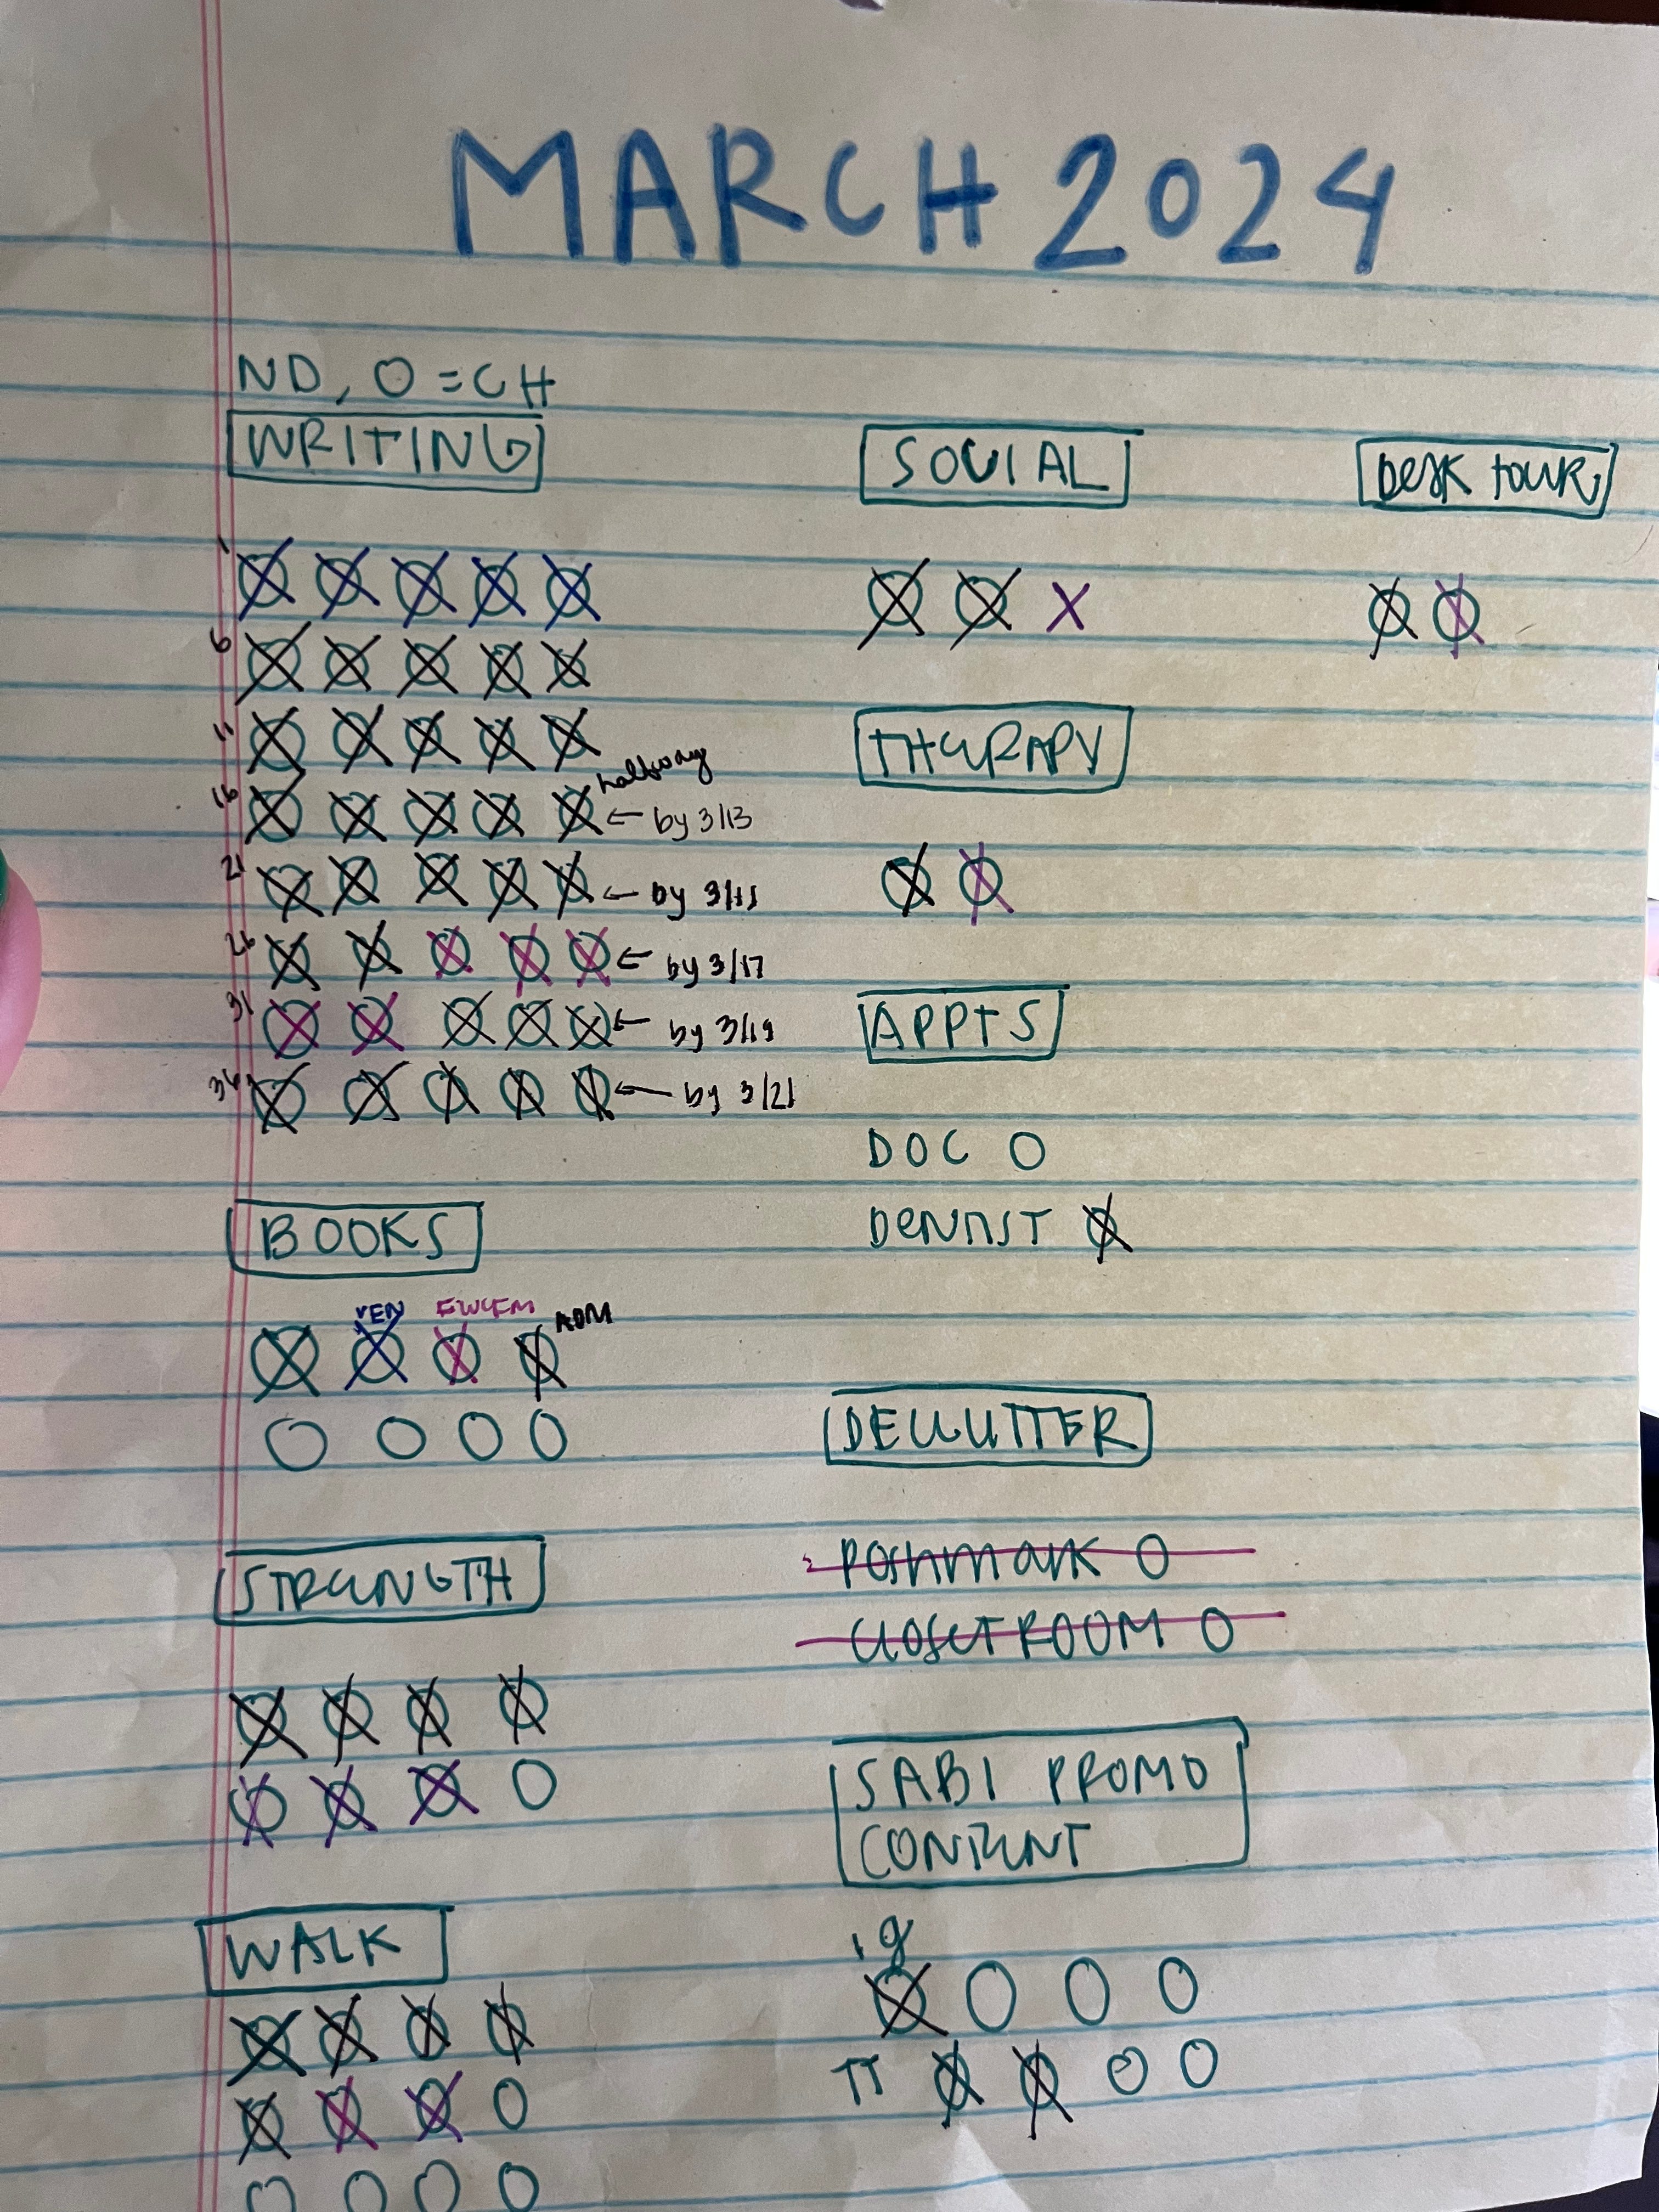 MARCH 2024
ND, O = CH
WRITING
1
6
11
16
halfway
← by 3/13
21
← by 3/15
26
← by 3/17
31
← by 3/19
36
← by 3/21
BOOKS
YEN
ADM
STRENGTH
WALK
SOCIAL
X
DESK TOUR
THERAPY
APPTS
DOC O
DENTIST
DECLUTTER
POSHMARK O
CLOSET ROOM O
SABI PROMO
CONTENT
ig
TT